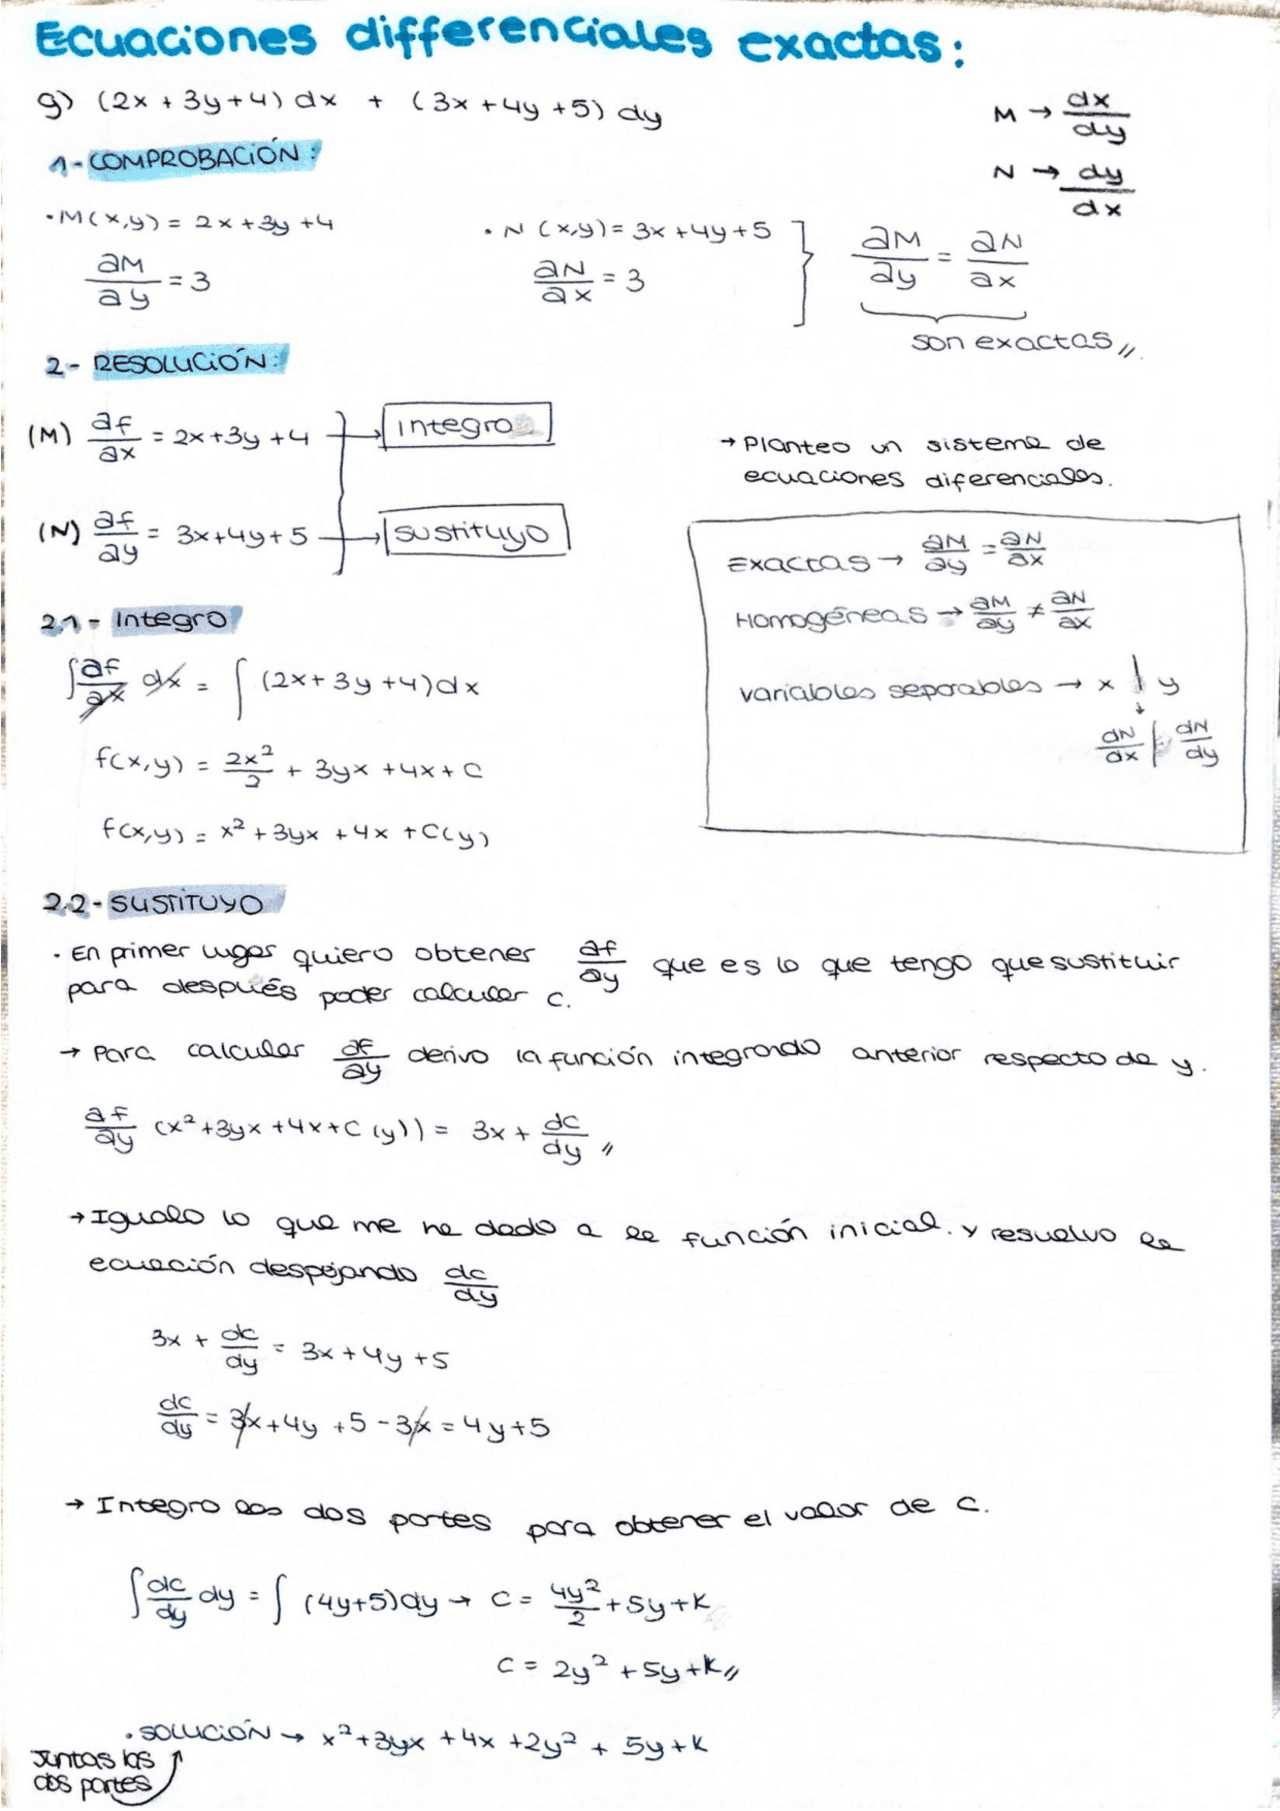 Ecuaciones differenciales exactas:
g) (2x + 3y + 4) dx + (3x + 4y + 5) dy
M → dx/dy
N → dy/dx
1- COMPROBACIÓN:
• M(x,y) = 2x + 3y + 4
∂M/∂y = 3
• N (x,y) = 3x + 4y + 5
∂N/∂x = 3
∂M/∂y = ∂N/∂x
son exactas //
2- RESOLUCIÓN:
(M) ∂f/∂x = 2x + 3y + 4 → integro
(N) ∂f/∂y = 3x + 4y + 5 → sustituyo
→ Planteo un sistema de
ecuaciones diferenciales.
Exactas → ∂M/∂y = ∂N/∂x
Homogéneas → ∂M/∂y ≠ ∂N/∂x
variables separables → x | y
dN/dx | dN/dy
2.1- Integro
∫ ∂f/∂x dx = ∫ (2x + 3y + 4) dx
f(x,y) = 2x²/2 + 3yx + 4x + C
f(x,y) = x² + 3yx + 4x + C(y)
2.2- SUSTITUYO
• En primer lugar quiero obtener ∂f/∂y que es lo que tengo que sustituir
para después poder calcular c.
→ Para calcular ∂f/∂y derivo la función integrando anterior respecto de y.
∂f/∂y (x² + 3yx + 4x + C(y)) = 3x + dc/dy //
→ Igualo lo que me ha dado a la función inicial. y resuelvo la
ecuación despejando dc/dy
3x + dc/dy = 3x + 4y + 5
dc/dy = 3x + 4y + 5 - 3x = 4y + 5
→ Integro las dos partes para obtener el valor de c.
∫ dc/dy dy = ∫ (4y + 5) dy → C = 4y²/2 + 5y + K
C = 2y² + 5y + K //
• SOLUCIÓN → x² + 3yx + 4x + 2y² + 5y + K
Juntas las
dos partes